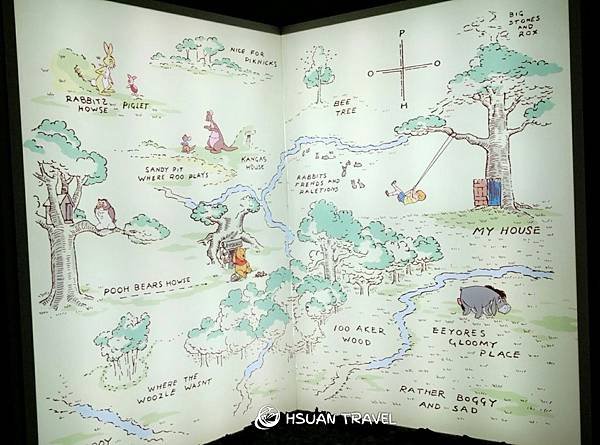 BIG
STONES
AND
ROX
NICE FOR
PIKNICKS
P
O O
H
RABBITZ
HOWSE
PIGLET
BEE
TREE
SANDY PIT
WHERE ROO PLAYS
KANGAS
HOUSE
RABBITS
FRENDS AND
RALETIONS
MY HOUSE
POOH BEARS HOWSE
100 AKER
WOOD
EEYORES
GLOOMY
PLACE
WHERE THE
WOOZLE WASNT
RATHER BOGGY
AND SAD
HSUAN TRAVEL